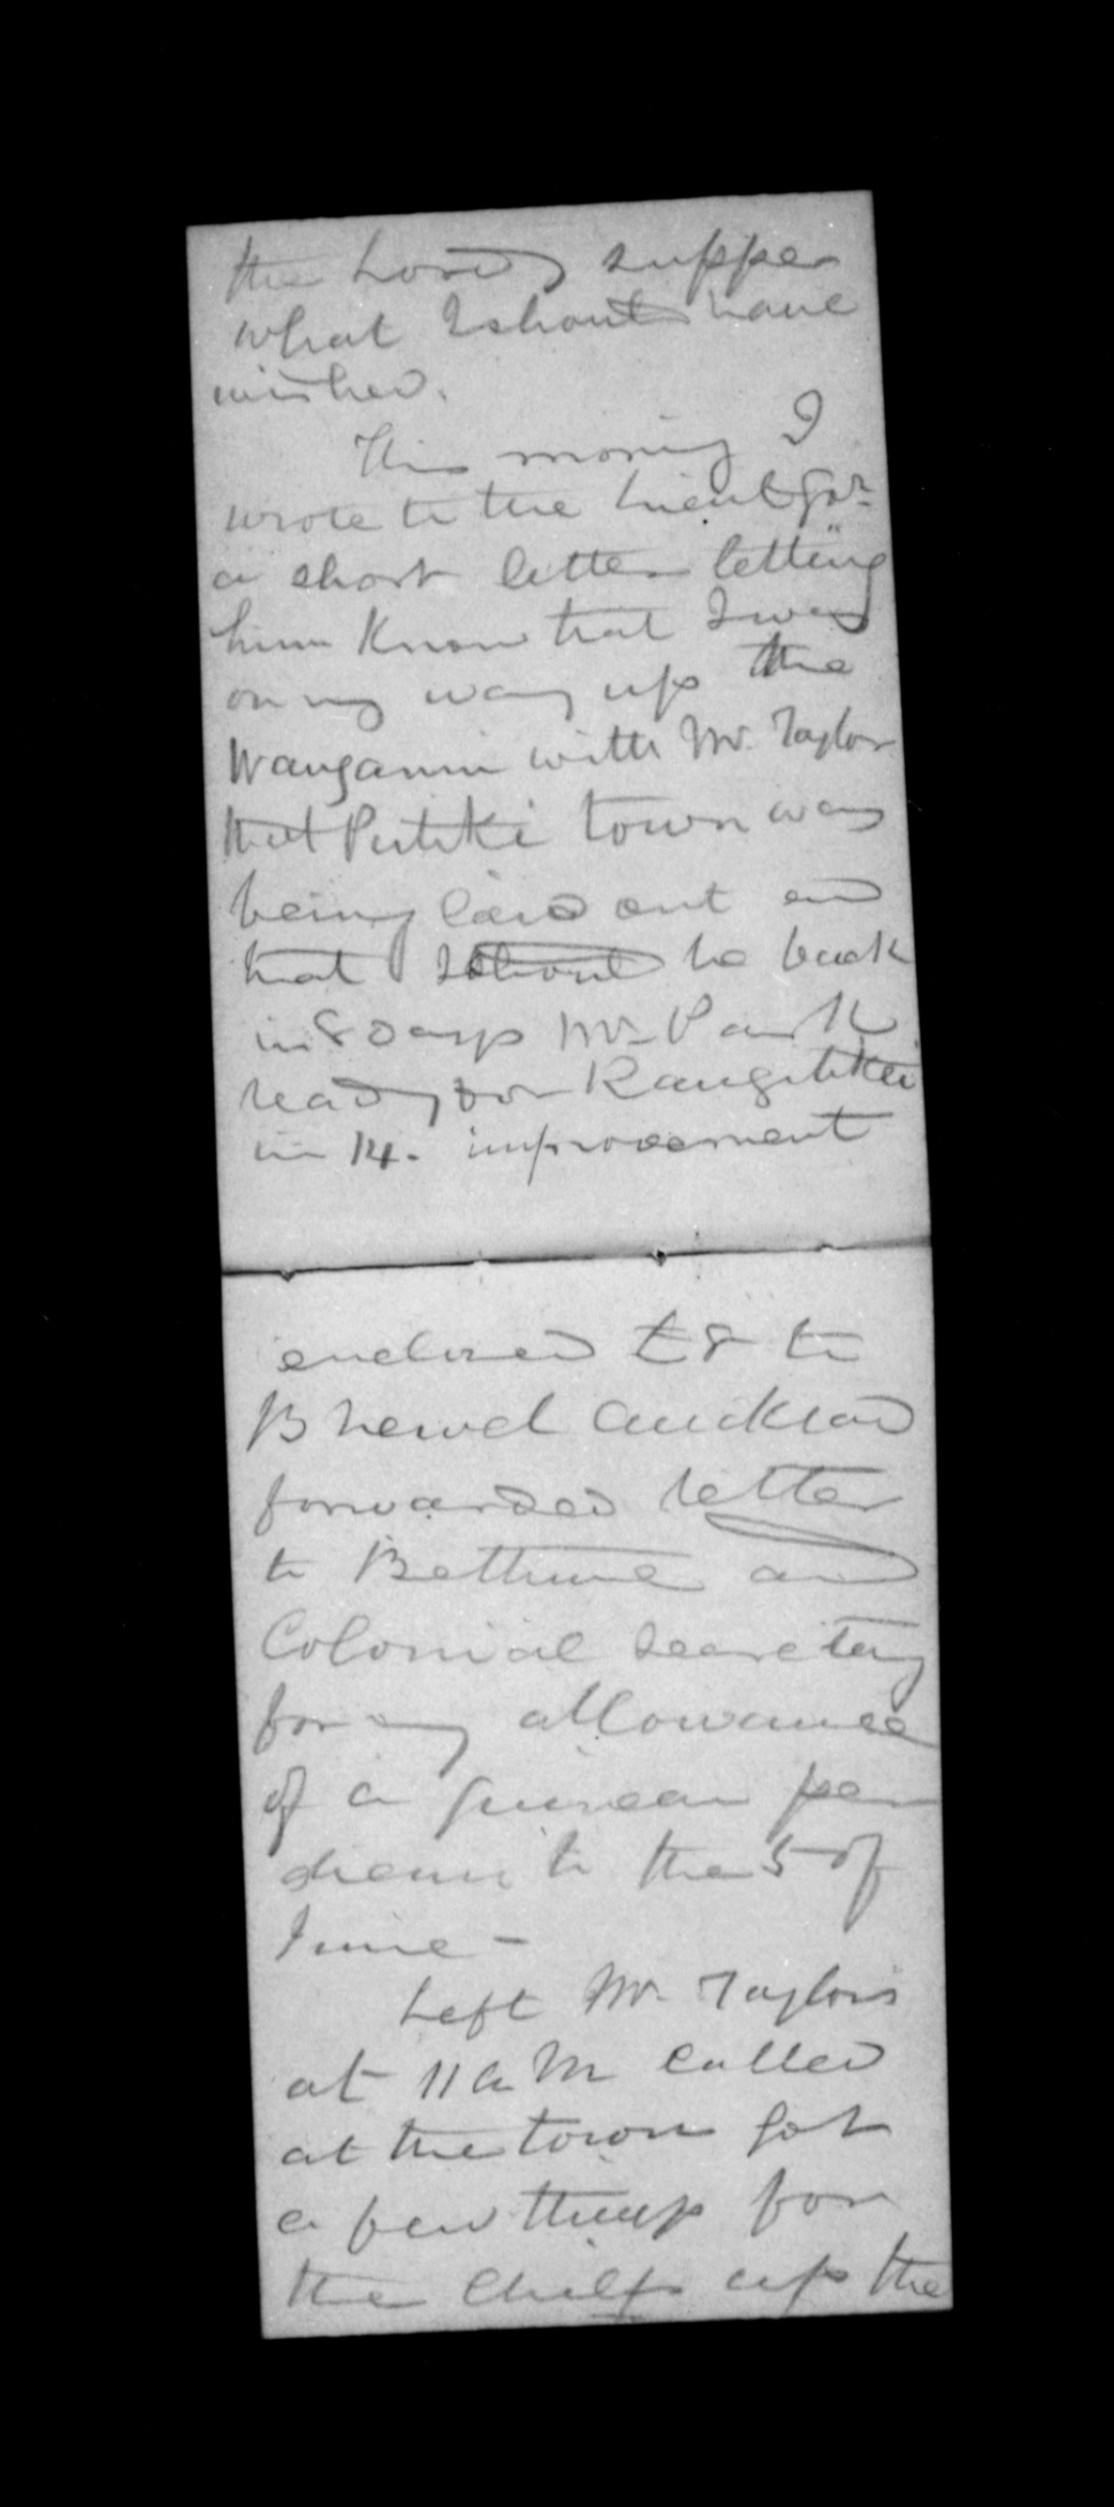 the Lords supper
what I should have
wished.
This morning I
wrote to the Lieut Govr
a short letter letting
him Know that I was
on my way up the
Wanganui with Mr. Taylor
that Putiki town was
being laid out and
that I should be back
in 8 days Mr Park
ready for Rangitikei
in 14. improvement
enclosed £8 to
B Auckland
forwarded letter
to Bethune and
Colonial Secretary
for my allowance
of a guinea per
diem to the 5 of
June -
Left Mr. Taylors
at 11 A M Called
at the town got
a few things for
the Chiefs up the